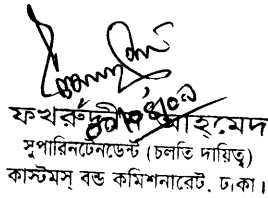 ফখরুদ্দীন আহমেদ
সুপারিনটেনডেন্ট (চলতি দায়িত্ব)
কাস্টমস্ বন্ড কমিশনারেট, ঢাকা।